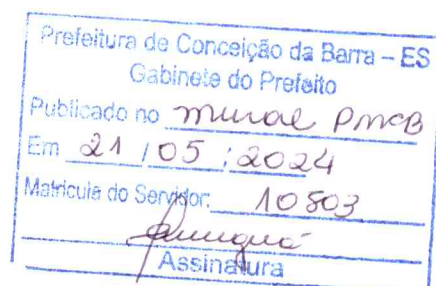 Prefeitura de Conceição da Barra – ES
Gabinete do Prefeito
Publicado no mural PMCB
Em 21 / 05 / 2024
Matricula do Servidor: 10803
Assinatura